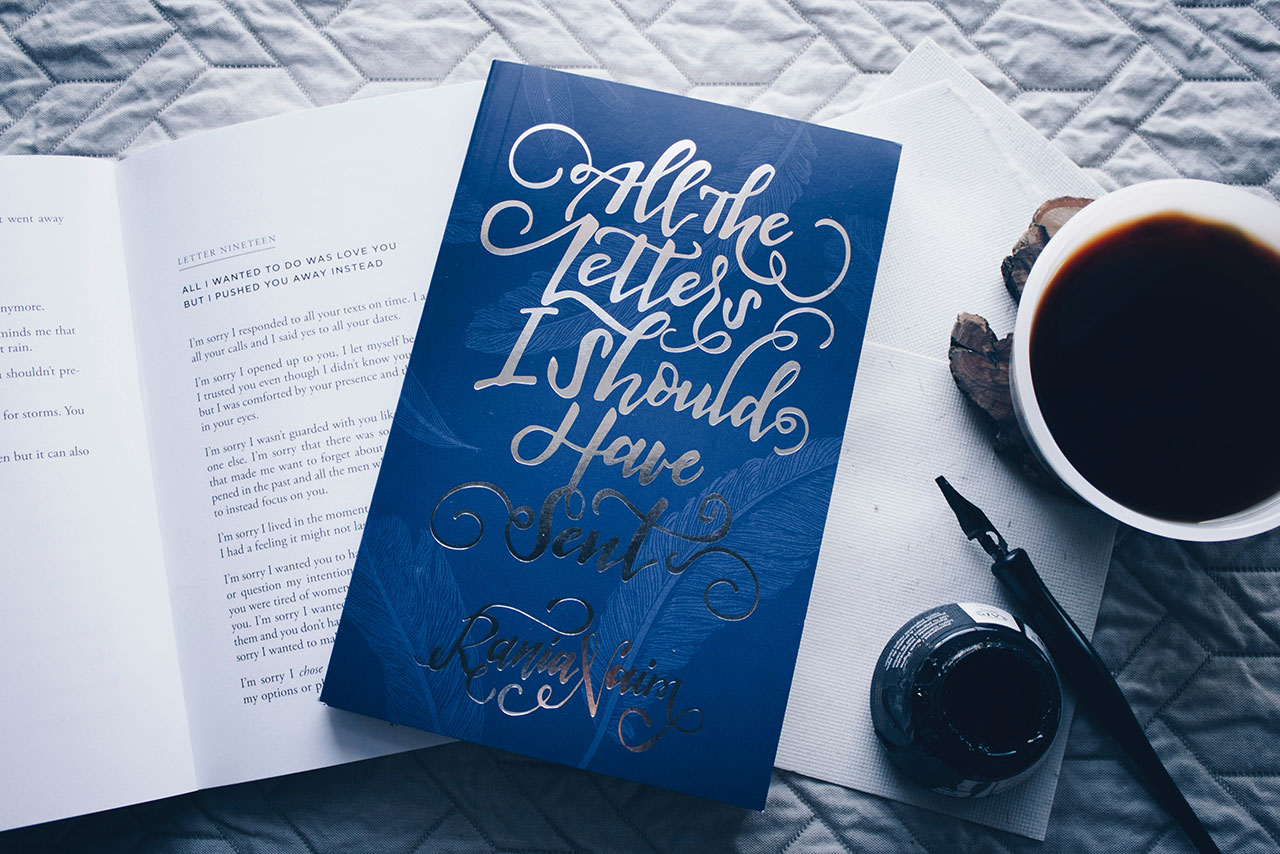 t went away
nymore.
minds me that
t rain.
u shouldn't pre-
for storms. You
en but it can also
LETTER NINETEEN
ALL I WANTED TO DO WAS LOVE YOU
BUT I PUSHED YOU AWAY INSTEAD
I'm sorry I responded to all your texts on time. I a
all your calls and I said yes to all your dates.
I'm sorry I opened up to you. I let myself be
I trusted you even though I didn't know you
but I was comforted by your presence and t
in your eyes.
I'm sorry I wasn't guarded with you lik
one else. I'm sorry that there was so
that made me want to forget about
pened in the past and all the men w
to instead focus on you.
I'm sorry I lived in the momen
I had a feeling it might not la
I'm sorry I wanted you to h
or question my intention
you were tired of women
you. I'm sorry I wante
them and you don't ha
sorry I wanted to ma
I'm sorry I chose
my options or p
All the
Letters
I Should
Have
Sent
Rania Naim